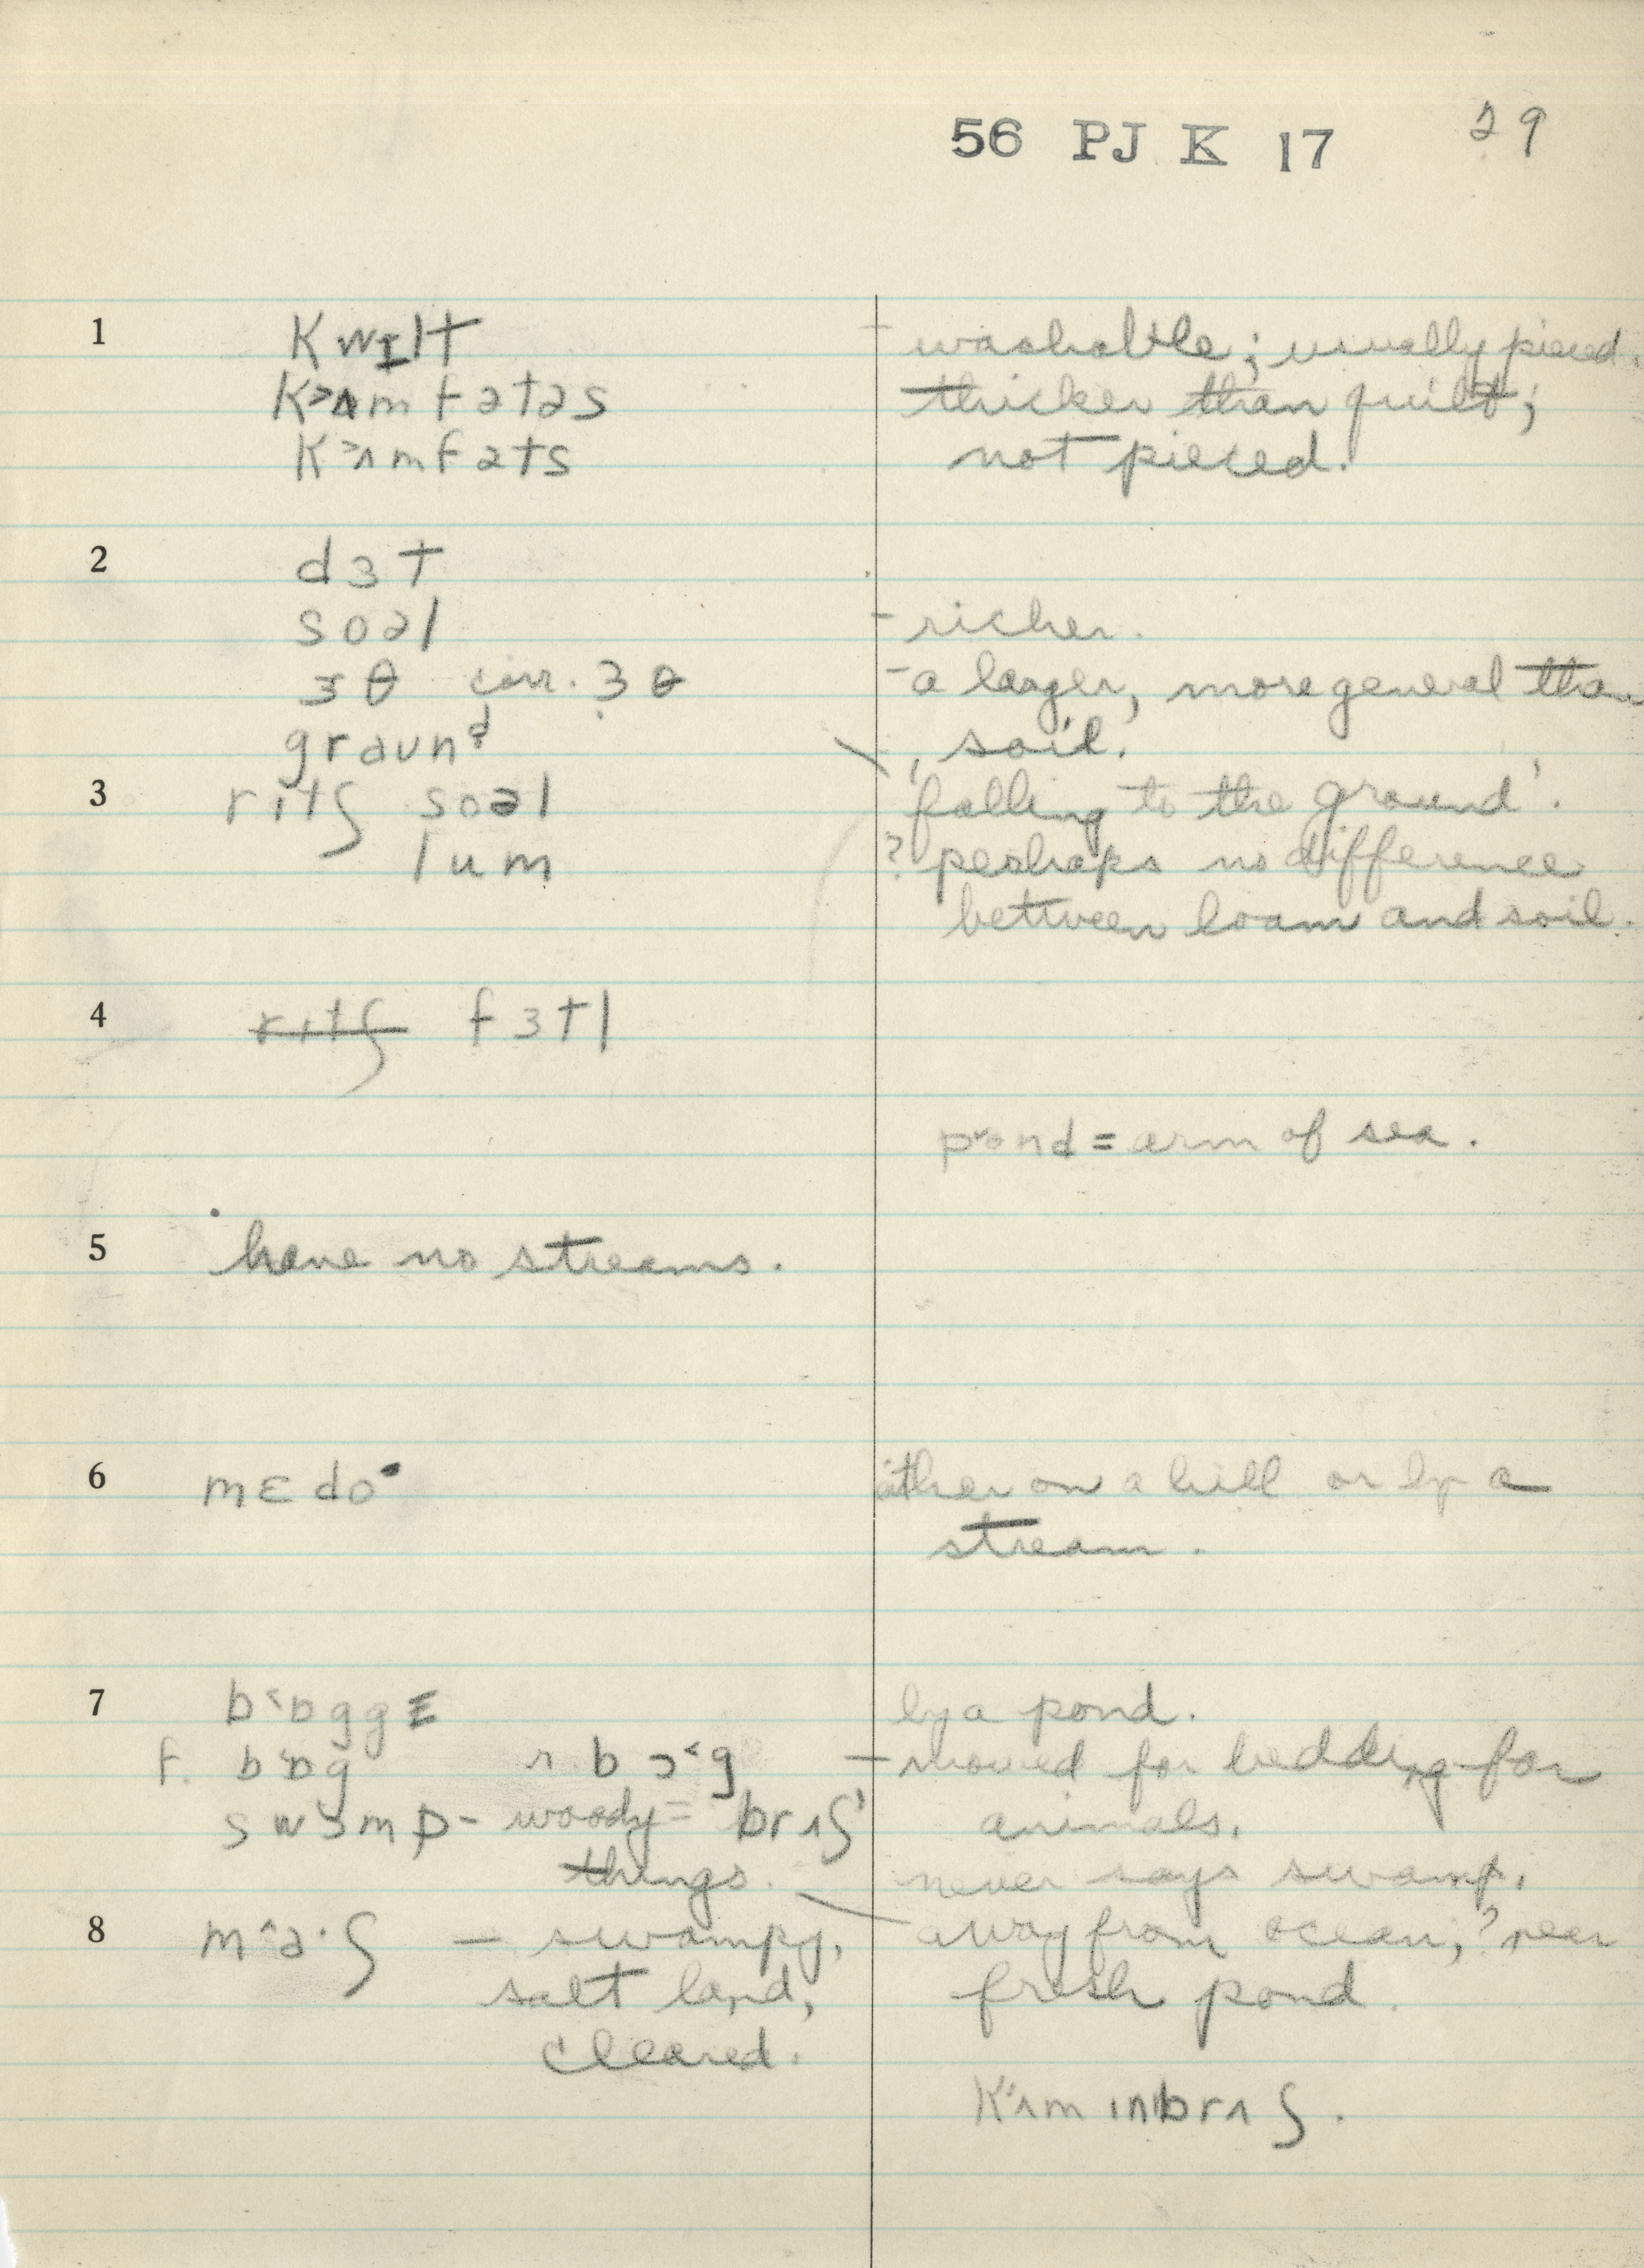 56 PJ K 17 29
1 kwɪlt - washable; usually pieced.
k˃ʌmfətəs thicker than quilt;
k˃ʌmfəts not pieced.
2 dɜt
soəl - richer.
ɜθ corr. ɜθ - a larger, more general than
graund soil.
3 rɪtʃ soəl 'falling to the ground'.
lum ? perhaps no difference
between loam and soil.
4 rɪtʃ fɜtl
pɒnd = arm of sea.
5 have no streams.
6 mɛdo· either on a hill or by a
stream.
7 b˂ɒggɛ by a pond.
f. b˂ɒg r. bɔ˂g - mowed for bedding for
swɒmp - woody = brʌʃ animals.
things. never says swamp.
8 m^a·ʃ — swampy, away from ocean, ? near
salt land, fresh pond.
cleared.
kʌm ɪn brʌʃ.